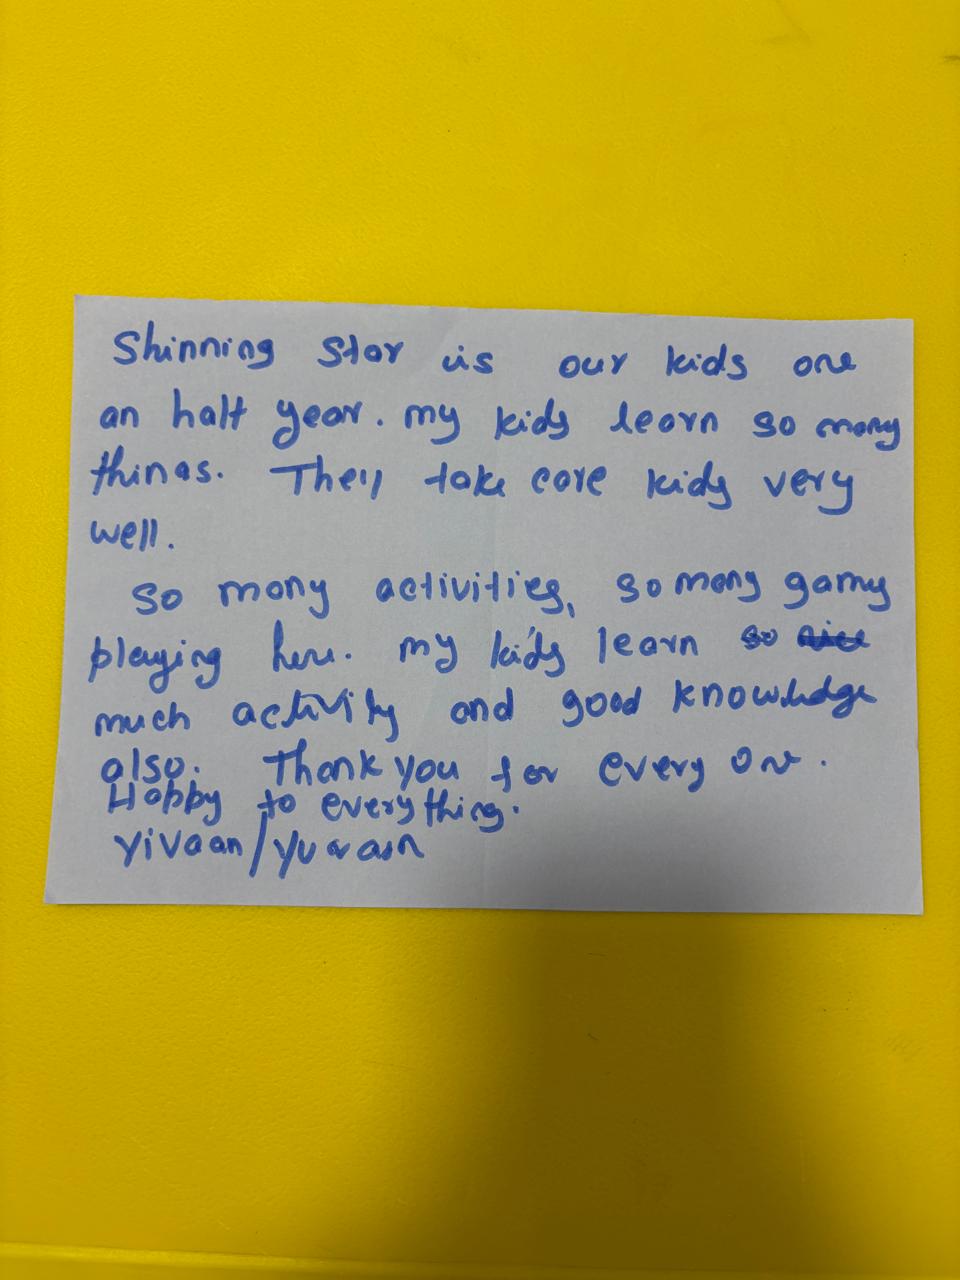 Shinning Star is our kids one
an half year. my kids learn so many
things. They take care kids very
well.
So many activities, so many games
playing here. my kids learn so
much activity and good knowledge
also. Thank you for every one.
Happy to everything.
Yivaan/Yuvaan